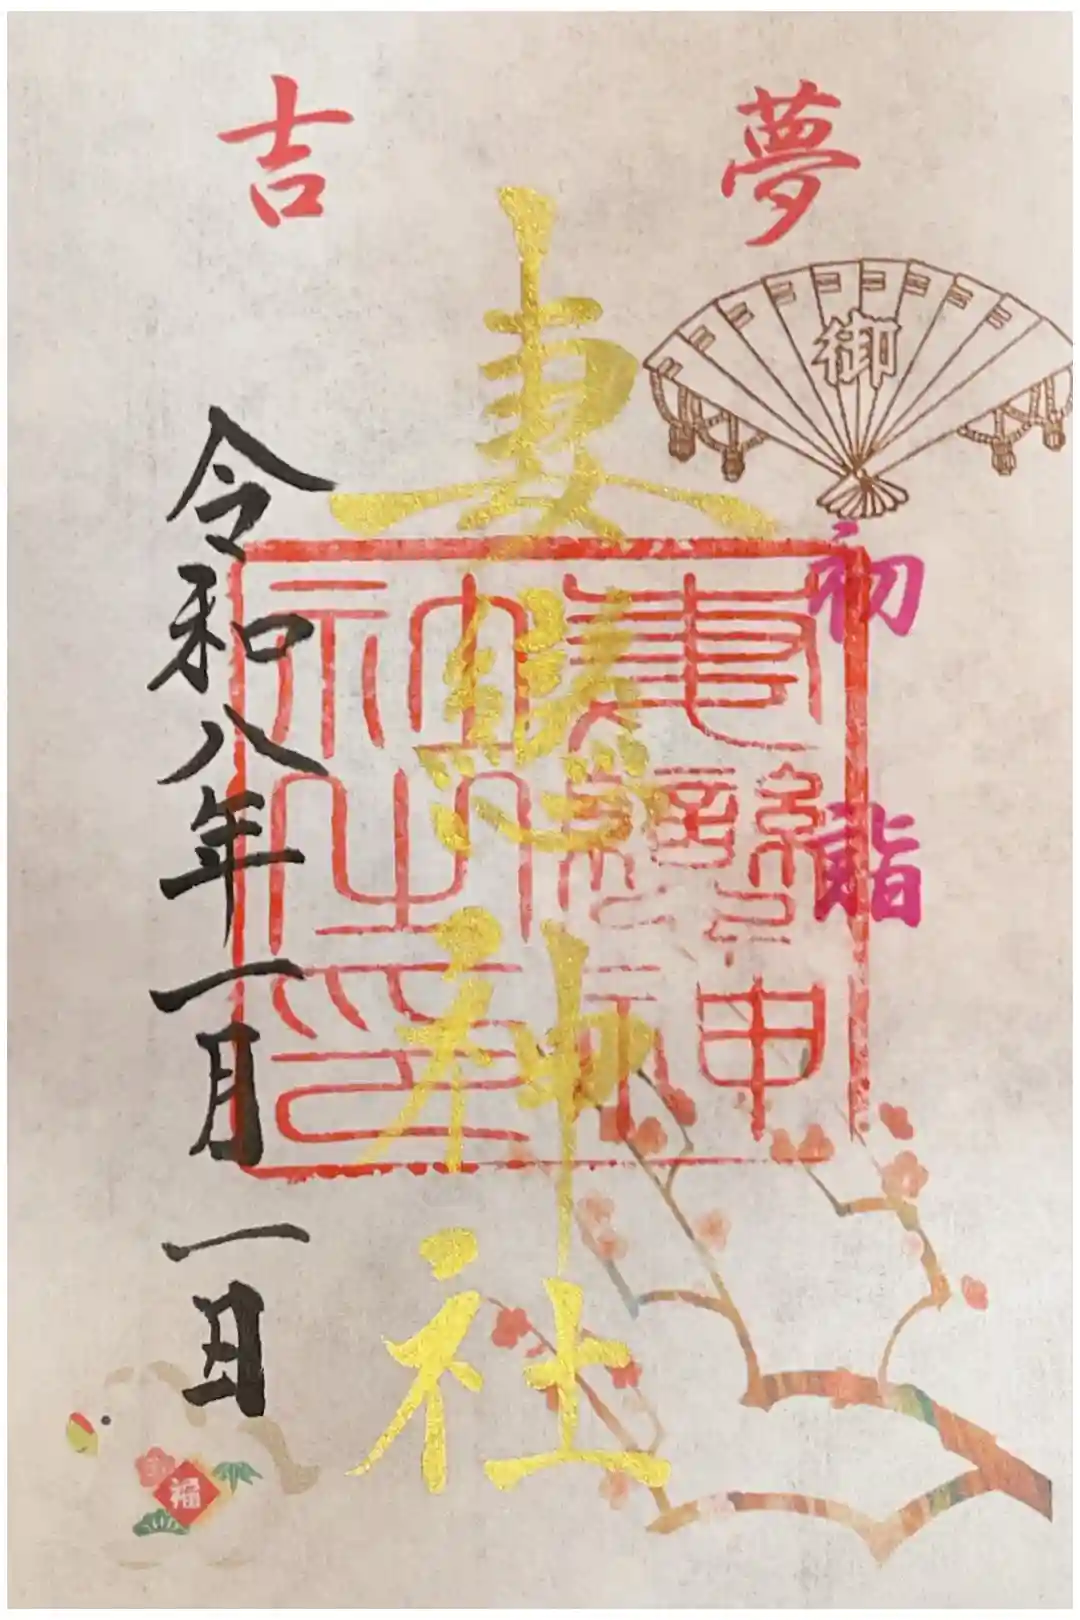 夢
吉
御
初詣
妻戀神社
令和八年一月一日
福